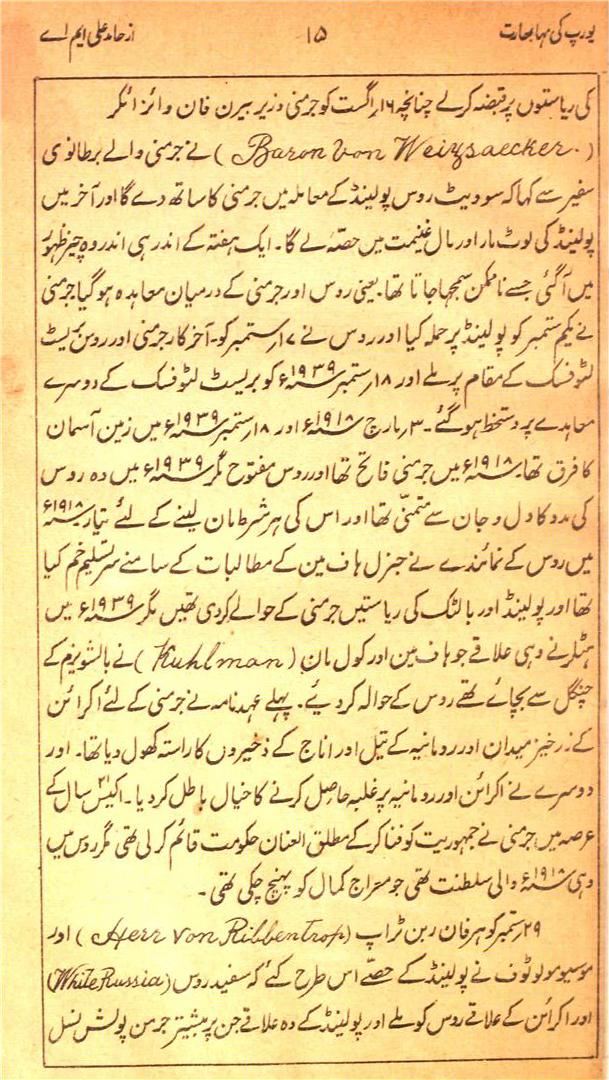 یورپ کی مہابھارت
۱۵
از حامد علی ایم اے
کی ریاستوں پر قبضہ کرلے چنانچہ ۱۶؍ اگست کو جرمنی وزیر بیرن فان وائز ائکر
(Baron Von Weiyzsaecker.) نے جرمنی والے برطانوی
سفیر سے کہا کہ سوویٹ روس پولینڈ کے معاملہ میں جرمنی کا ساتھ دے گا اور آخر میں
پولینڈ کی لوٹ مار اور مال غنیمت میں حصّہ لے گا۔ ایک ہفتہ کے اندر ہی اندر وہ چیز ظہور
میں آگئی جسے ناممکن سمجہا جاتا تھا۔ یعنی روس اور جرمنی کے درمیان معاہدہ ہوگیا جرمنی
نے یکم ستمبر کو پولینڈ پر حملہ کیا اور روس نے ۱۷؍ ستمبر کو۔ آخر کار جرمنی اور روس بریسٹ
لٹوفسک کے مقام پر ملے اور ۱۸؍ ستمبر ۱۹۳۹ء کو بریسٹ لٹوفسک کے دوسرے
معاہدے پر دستخط ہوگئے۔ ۳؍ مارچ ۱۹۱۸ء اور ۱۸؍ ستمبر ۱۹۳۹ء میں زمین آسمان
کا فرق تھا۔ ۱۹۱۸ء میں جرمنی فاتح تھا اور روس مفتوح مگر ۱۹۳۹ء میں وہ روس
کی مدد کا دل و جان سے متمنّی تھا اور اس کی ہر شرط مان لینے کے لئے تیار ۱۹۱۸ء
میں روس کے نمائندے نے جنرل ہاف مین کے مطالبات کے سامنے سر تسلیم خم کیا
تھا اور پولینڈ اور بالٹک کی ریاستیں جرمنی کے حوالے کردی تھیں مگر ۱۹۳۹ء میں
ہٹلر نے وہی علاقے جو ہاف مین اور کول مان (Kuhlman) نے بالشویزم کے
چنگل سے بچائے تھے روس کے حوالہ کردیئے۔ پہلے عہدنامہ نے جرمنی کے لئے اکرائن
کے زرخیز میدان اور رومانیہ کے تیل اور اناج کے ذخیروں کا راستہ کھول دیا تھا۔ اور
دوسرے نے اکرائن اور رومانیہ پر غلبہ حاصل کرنے کا خیال باطل کردیا۔ اکیس۲۱ سال کے
عرصہ میں جرمنی نے جمہوریت کو فنا کرکے مطلق العنان حکومت قائم کرلی تھی مگر روس میں
وہی ۱۹۱۸ء والی سلطنت تھی جو معراج کمال کو پہنچ چکی تھی۔
۲۹؍ ستمبر کو ہر فان ربن ٹراپ (Herr von Ribbentrop) اور
موسیو مولوٹوف نے پولینڈ کے حصّے اس طرح کئے کہ سفید روس (White Russia)
اور اکرائن کے علاقے روس کو ملے اور پولینڈ کے وہ علاقے جن پر بیشتر جرمن پولش نسل